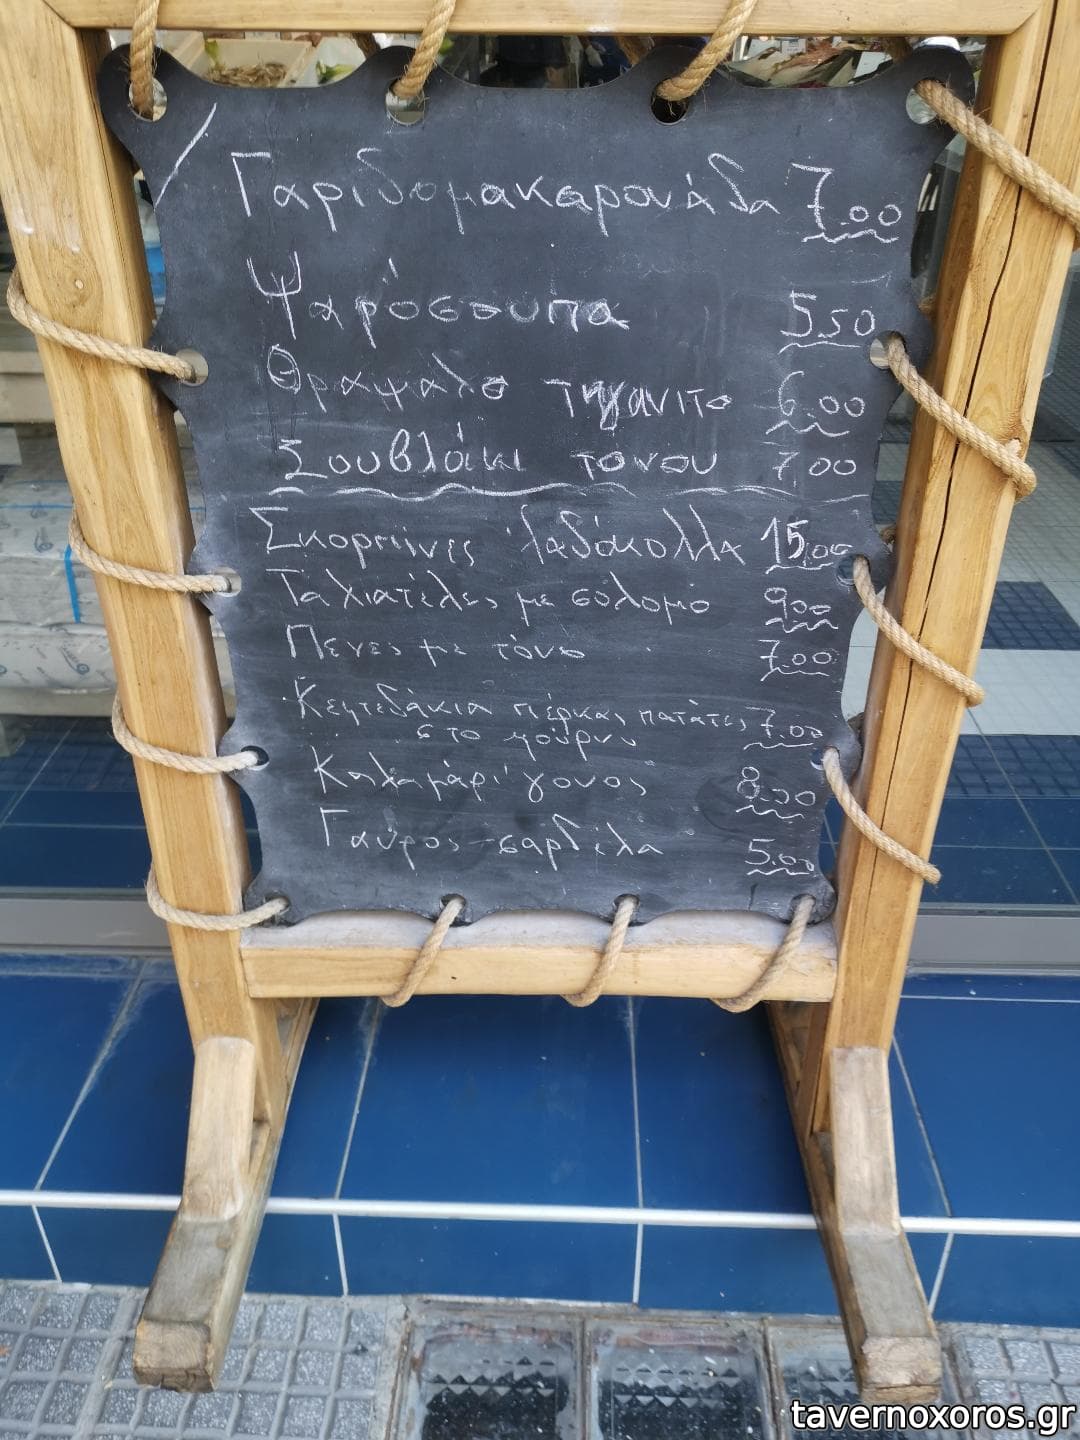 Γαριδομακαρονάδα 7.00
Ψαρόσουπα 5.50
Θράψαλο τηγανιτο 6.00
Σουβλάκι τόνου 7,00
Σκορπίνες λαδόκολλα 15.00
Ταλιατέλες με σολομό 9.00
Πένες με τόνο 7.00
Κεφτεδάκια πέρκας πατάτες 7.00
στο φούρνο
Καλαμάρι γόνος 8.00
Γαύρος - σαρδέλα 5.00
tavernoxoros.gr